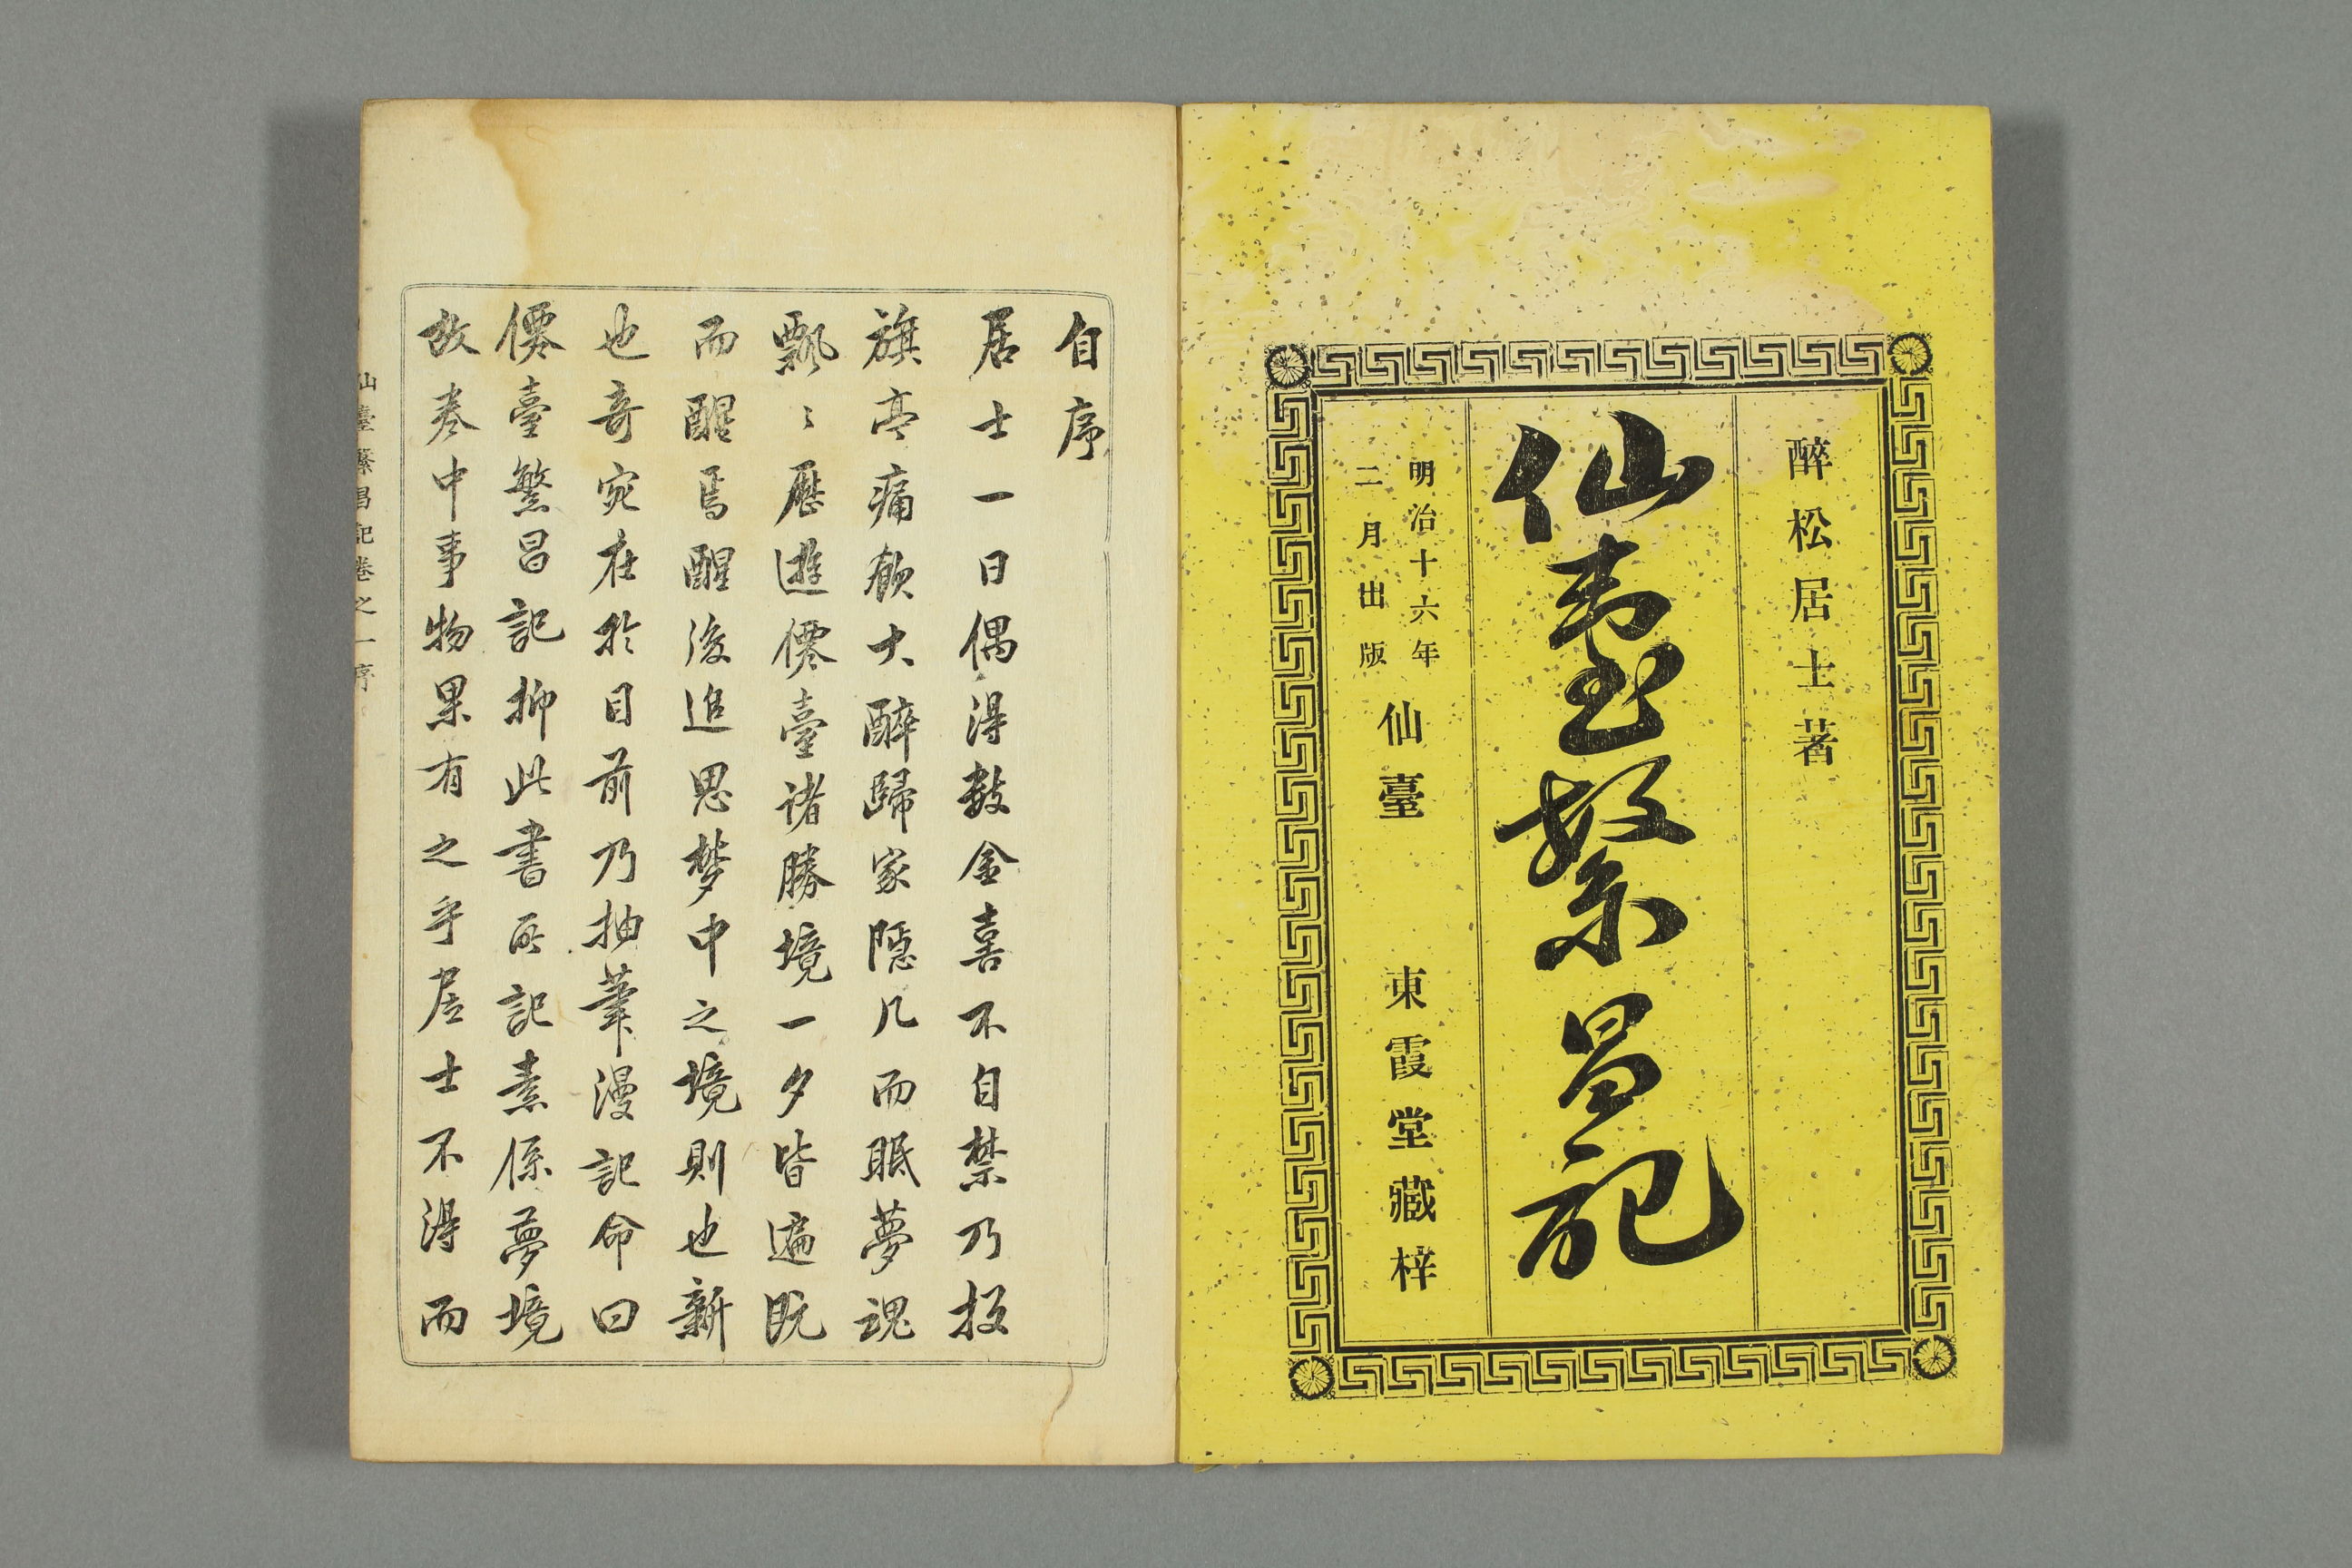 醉松居士著
仙臺繁昌記
明治十六年
二月出版
仙臺　東霞堂藏梓
自序
居士一日偶得數金喜不自禁乃投
旗亭痛飲大醉歸家隱几而眠夢魂
飄〻歷遊僊臺諸勝境一夕皆遍既
而醒焉醒後追思夢中之境則也新
也奇宛在於目前乃抽筆漫記命曰
僊臺繁昌記抑此書所記素係夢境
故卷中事物果有之乎居士不得而
仙臺繁昌記卷之一序